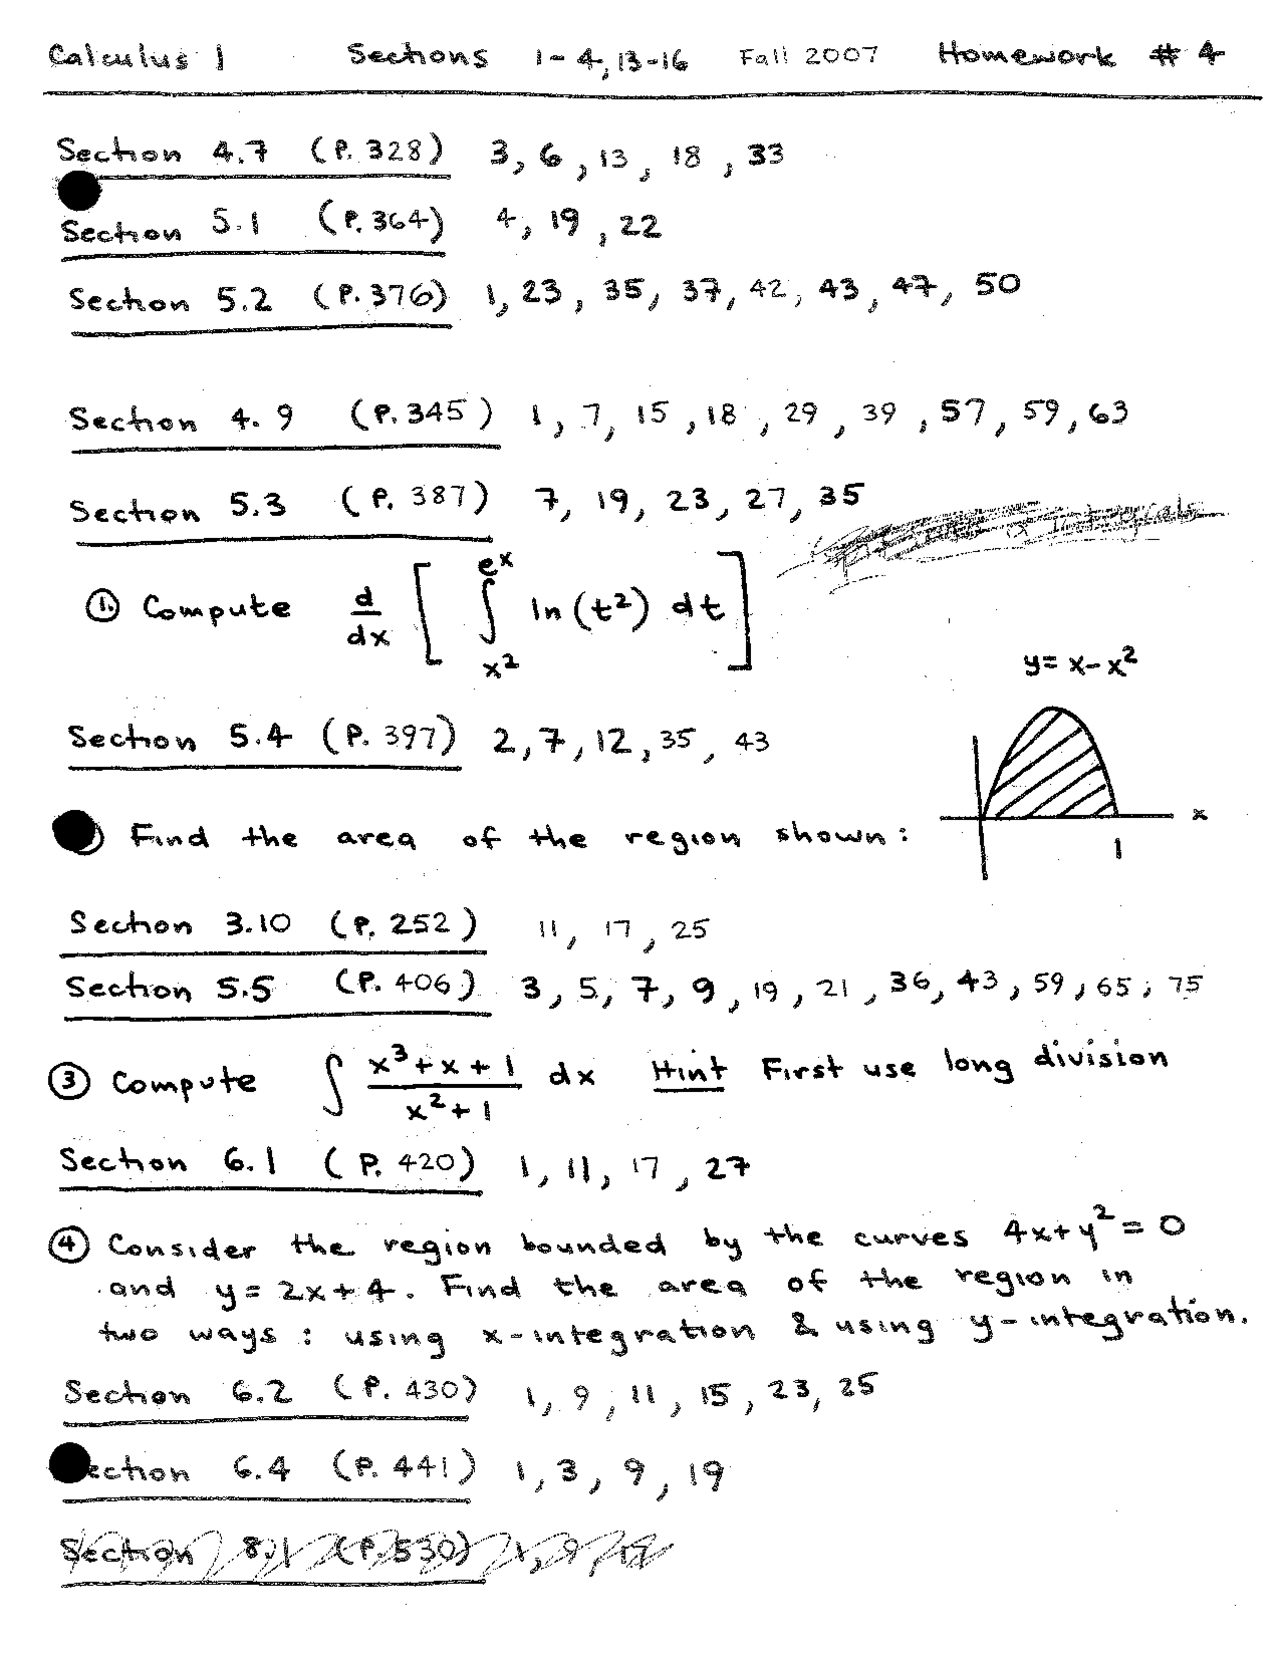 Calculus 1 Sections 1-4, 13-16 Fall 2007 Homework # 4
Section 4.7 (P. 328) 3, 6, 13, 18, 33
Section 5.1 (P. 364) 4, 19, 22
Section 5.2 (P. 376) 1, 23, 35, 37, 42, 43, 47, 50
Section 4.9 (P. 345) 1, 7, 15, 18, 29, 39, 57, 59, 63
Section 5.3 (P. 387) 7, 19, 23, 27, 35
① Compute d/dx [ ∫_{x²}^{e^x} ln(t²) dt ]
y = x - x²
Section 5.4 (P. 397) 2, 7, 12, 35, 43
Find the area of the region shown:
x
1
Section 3.10 (P. 252) 11, 17, 25
Section 5.5 (P. 406) 3, 5, 7, 9, 19, 21, 36, 43, 59, 65, 75
③ Compute ∫ (x³ + x + 1)/(x² + 1) dx Hint First use long division
Section 6.1 (P. 420) 1, 11, 17, 27
④ Consider the region bounded by the curves 4x + y² = 0
and y = 2x + 4. Find the area of the region in
two ways: using x-integration & using y-integration.
Section 6.2 (P. 430) 1, 9, 11, 15, 23, 25
ection 6.4 (P. 441) 1, 3, 9, 19
Section 8.1 (P. 530) 1, 9,